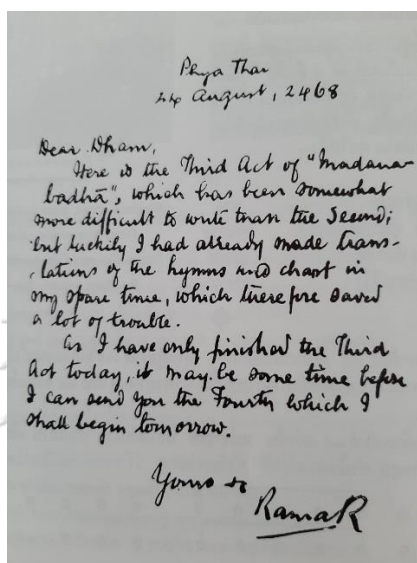 Phya Thai
24 August, 2468
Dear Dham,
Here is the Third Act of "Madana-
badhā", which has been somewhat
more difficult to write than the Second;
but luckily I had already made trans-
lations of the hymns and chant in
my spare time, which therefore saved
a lot of trouble.
As I have only finished the Third
Act today, it may be some time before
I can send you the Fourth which I
shall begin tomorrow.
Yours
Rama R